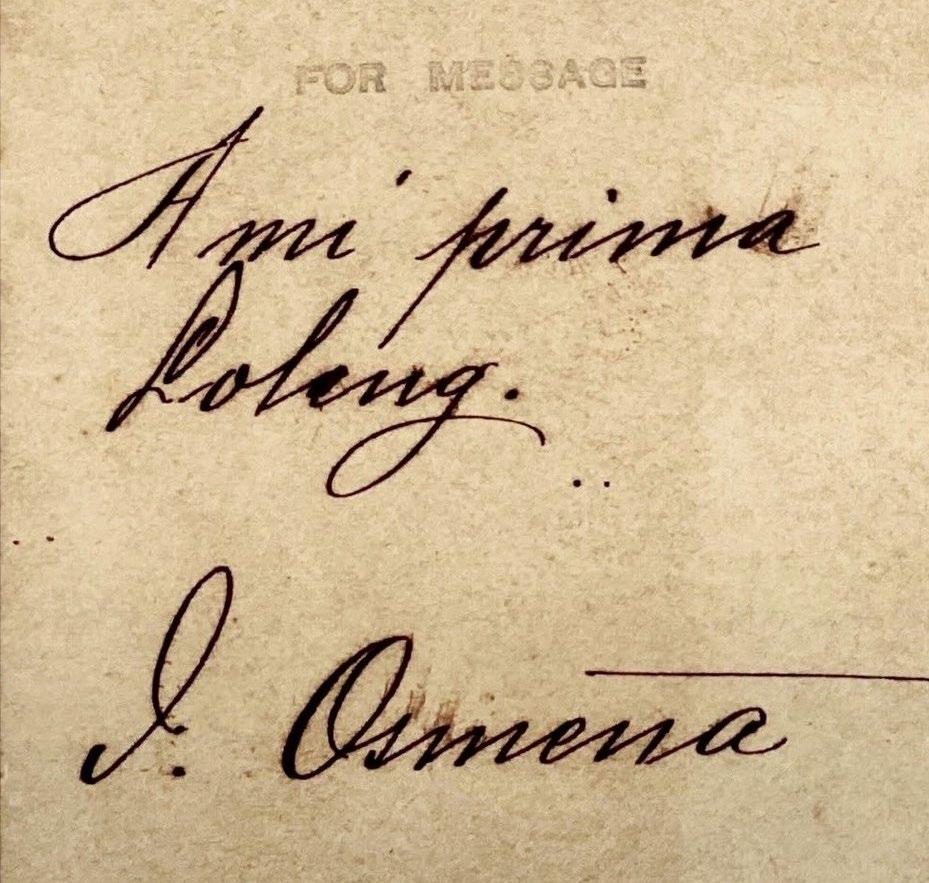 FOR MESSAGE
A mi prima
Loleng.
I. Osmeña